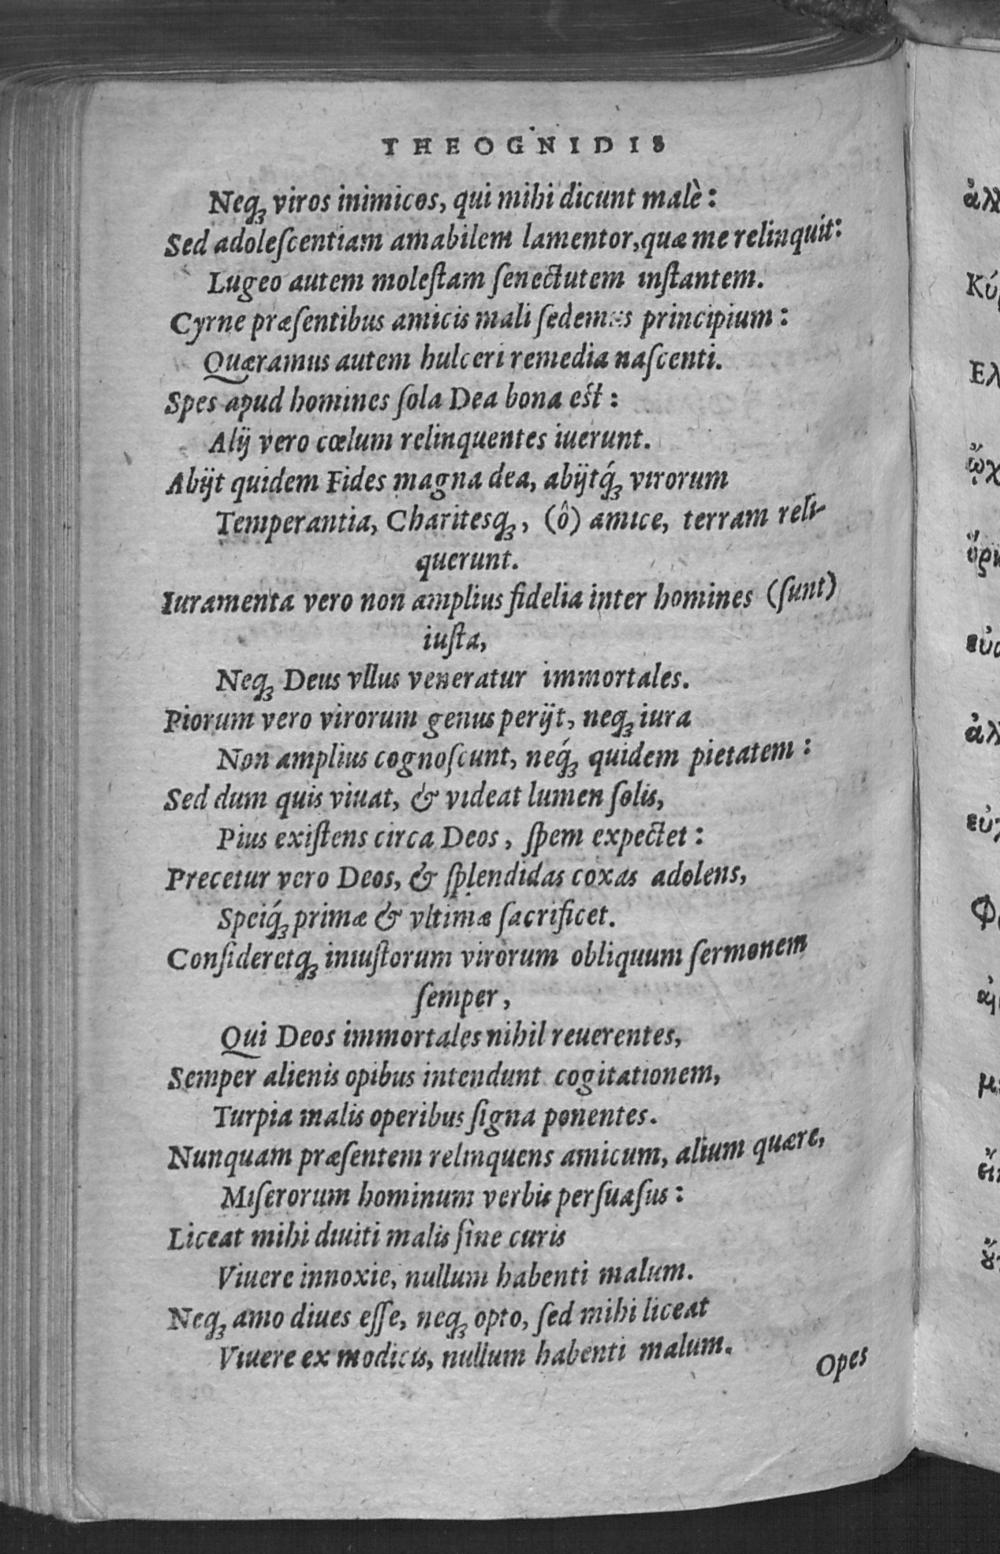 THEOGNIDIS
Neq; viros inimicos, qui mihi dicunt malè:
Sed adoleſcentiam amabilem lamentor, quæ me relinquit:
Lugeo autem moleſtam ſenectutem inſtantem.
Cyrne præſentibus amicis mali ſedemus principium:
Quæramus autem hulceri remedia naſcenti.
Spes apud homines ſola Dea bona eſt:
Alij vero cœlum relinquentes iuerunt.
Abijt quidem Fides magna dea, abijtq́; virorum
Temperantia, Charitesq;, (ô) amice, terram reli-
querunt.
Iuramenta vero non amplius fidelia inter homines (ſunt)
iuſta,
Neq; Deus vllus veneratur immortales.
Piorum vero virorum genus perijt, neq; iura
Non amplius cognoſcunt, neq́; quidem pietatem:
Sed dum quis viuat, & videat lumen ſolis,
Pius exiſtens circa Deos, ſpem expectet:
Precetur vero Deos, & ſplendidas coxas adolens,
Speiq́; primæ & vltimæ ſacrificet.
Conſideretq; iniuſtorum virorum obliquum ſermonem
ſemper,
Qui Deos immortales nihil reuerentes,
Semper alienis opibus intendunt cogitationem,
Turpia malis operibus ſigna ponentes.
Nunquam præſentem relinquens amicum, alium quære,
Miſerorum hominum verbis perſuaſus:
Liceat mihi diuiti malis ſine curis
Viuere innoxie, nullum habenti malum.
Neq; amo diues eſſe, neq; opto, ſed mihi liceat
Viuere ex modicis, nullum habenti malum.
Opes
ἀλ
Κύ
Ελ
ᾤχ
ὅρκ
ἀλ
Φ